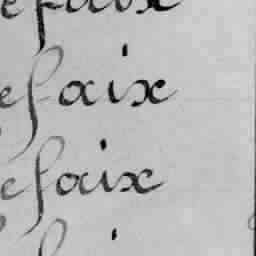 efaix
efaix
efaix